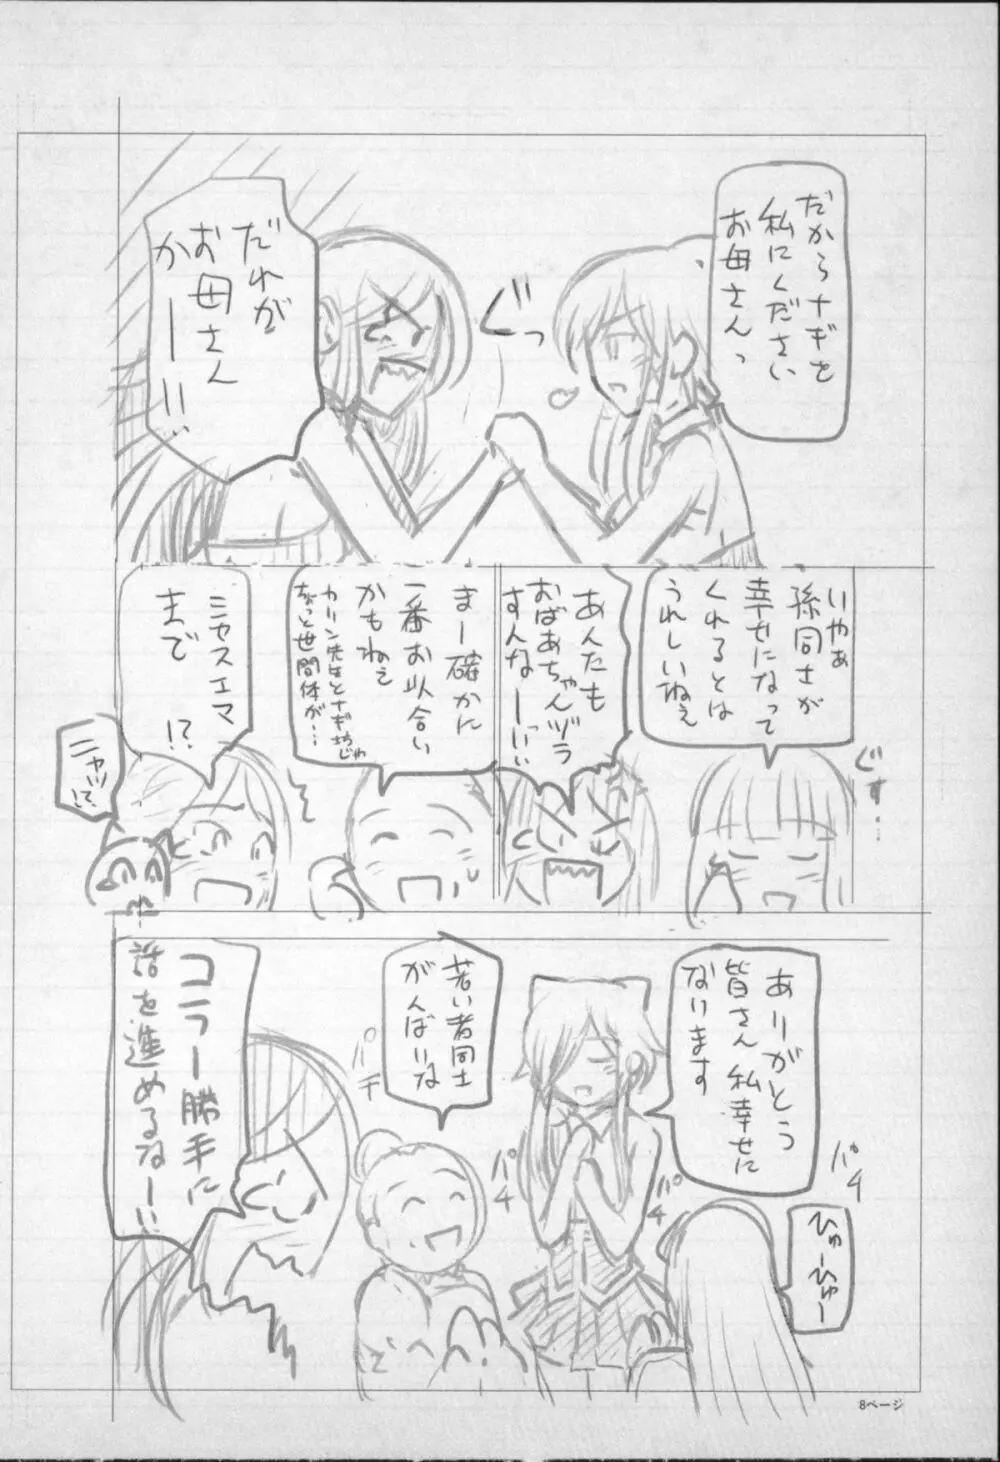 だからナギを
私にください
お母さんっ
ぐっ
だれが
お母さん
かーー!!
いやぁ
孫同士が
幸せになって
くれるとは
うれしいねぇ
ぐす…
あんたも
おばあちゃんヅラ
すんなーっ!!
まー確かに
一番お似合い
かもねぇ
カリン先生とナギちゃんじゃ
ちょっと世間体が…
ミャスエマ
まで!?
ニャッ!?
ありがとう
皆さん私幸せに
なります
パチ
ひゅーひゅー
パチ
パチ
若い者同士
がんばいな
パチ
コラー勝手に
話を進めるなー!!
8ページ